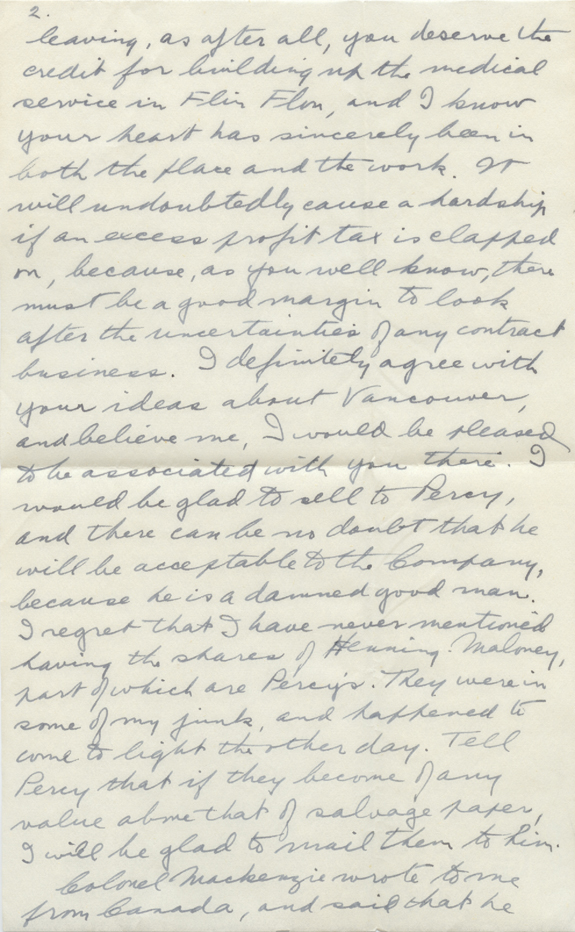 2.
leaving, as after all, you deserve the
credit for building up the medical
service in Flin Flon, and I know
your heart has sincerely been in
both the place and the work. It
will undoubtedly cause a hardship
if an excess profit tax is clapped
on, because, as you well know, there
must be a good margin to look
after the uncertainties of any contract
business. I definitely agree with
your ideas about Vancouver,
and believe me, I would be pleased
to be associated with you there. I
would be glad to sell to Percy,
and there can be no doubt that he
will be acceptable to the Company,
because he is a damned good man.
I regret that I have never mentioned
having the shares of Henning Maloney,
part of which are Percy's. They were in
some of my junk, and happened to
come to light the other day. Tell
Percy that if they become of any
value above that of salvage paper,
I will be glad to mail them to him.
Colonel Mackenzie wrote to me
from Canada, and said that he